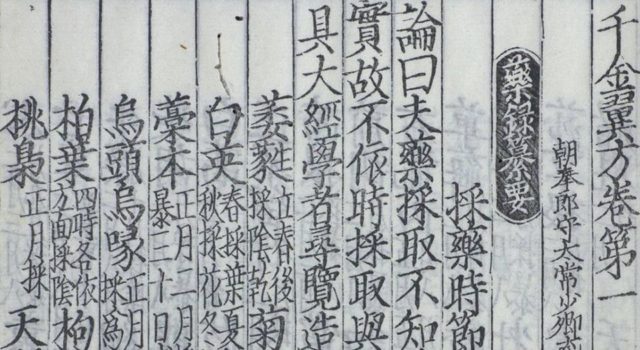 千金翼方卷第一
朝奉郎守太常少卿充
藥録纂要
採藥時節
論曰夫藥採取不知
實故不依時採取與
具大經學者尋覽造
萎蕤立春後採陰乾菊
白英春採葉夏秋採花冬
藁本正月二月暴三十日
烏頭烏喙正月採爲
柏葉四時各依方面採陰枸
桃梟正月採天